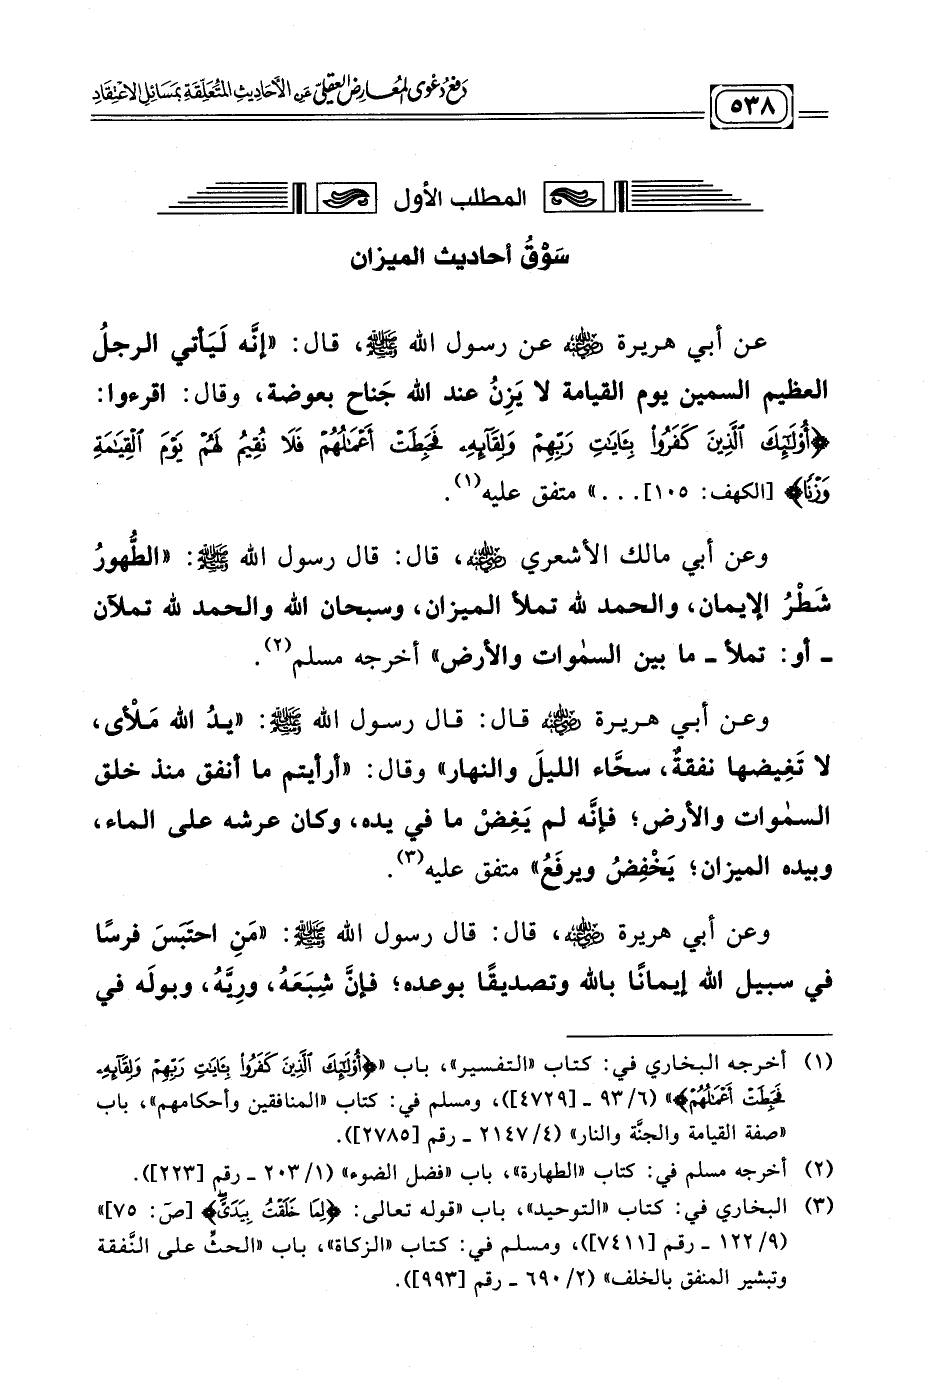 دفع دعوى المعارض العقلي عن الأحاديث المتعلقة بمسائل الاعتقاد
٥٣٨
المطلب الأول
سَوْقُ أحاديث الميزان
عن أبي هريرة رضي الله عنه عن رسول الله ﷺ، قال: «إنَّه لَيَأتي الرجلُ
العظيم السمين يوم القيامة لا يَزِنُ عند الله جَناح بعوضة، وقال: اقرءوا:
﴿أُوْلَٰٓئِكَ ٱلَّذِينَ كَفَرُواْ بِـَٔايَٰتِ رَبِّهِمۡ وَلِقَآئِهِۦ فَحَبِطَتۡ أَعۡمَٰلُهُمۡ فَلَا نُقِيمُ لَهُمۡ يَوۡمَ ٱلۡقِيَٰمَةِ
وَزۡنٗا﴾ [الكهف: ١٠٥]...» متفق عليه(١).
وعن أبي مالك الأشعري رضي الله عنه، قال: قال رسول الله ﷺ: «الطُّهورُ
شَطْرُ الإيمان، والحمد لله تملأ الميزان، وسبحان الله والحمد لله تملآن
ـ أو: تملأ ـ ما بين السمٰوات والأرض» أخرجه مسلم(٢).
وعن أبي هريرة رضي الله عنه قال: قال رسول الله ﷺ: «يدُ الله مَلْأى،
لا تَغِيضها نفقةٌ، سحَّاء الليلَ والنهار» وقال: «أرأيتم ما أنفق منذ خلق
السمٰوات والأرض؛ فإنَّه لم يَغِضْ ما في يده، وكان عرشه على الماء،
وبيده الميزان؛ يَخْفِضُ ويرفَعُ» متفق عليه(٣).
وعن أبي هريرة رضي الله عنه، قال: قال رسول الله ﷺ: «مَنِ احتَبَسَ فرسًا
في سبيل الله إيمانًا بالله وتصديقًا بوعده؛ فإنَّ شِبَعَهُ، ورِيَّهُ، وبولَه في
(١) أخرجه البخاري في: كتاب «التفسير»، باب «﴿أُوْلَٰٓئِكَ ٱلَّذِينَ كَفَرُواْ بِـَٔايَٰتِ رَبِّهِمۡ وَلِقَآئِهِۦ
فَحَبِطَتۡ أَعۡمَٰلُهُمۡ﴾» (٩٣/٦ ـ [٤٧٢٩])، ومسلم في: كتاب «المنافقين وأحكامهم»، باب
«صفة القيامة والجنَّة والنار» (٢١٤٧/٤ ـ رقم [٢٧٨٥]).
(٢) أخرجه مسلم في: كتاب «الطهارة»، باب «فضل الضوء» (٢٠٣/١ ـ رقم [٢٢٣]).
(٣) البخاري في: كتاب «التوحيد»، باب «قوله تعالى: ﴿لِمَا خَلَقۡتُ بِيَدَيَّۖ﴾ [صٓ: ٧٥]»
(١٢٢/٩ ـ رقم [٧٤١١])، ومسلم في: كتاب «الزكاة»، باب «الحثِّ على النَّفقة
وتبشير المنفق بالخلف» (٦٩٠/٢ ـ رقم [٩٩٣]).